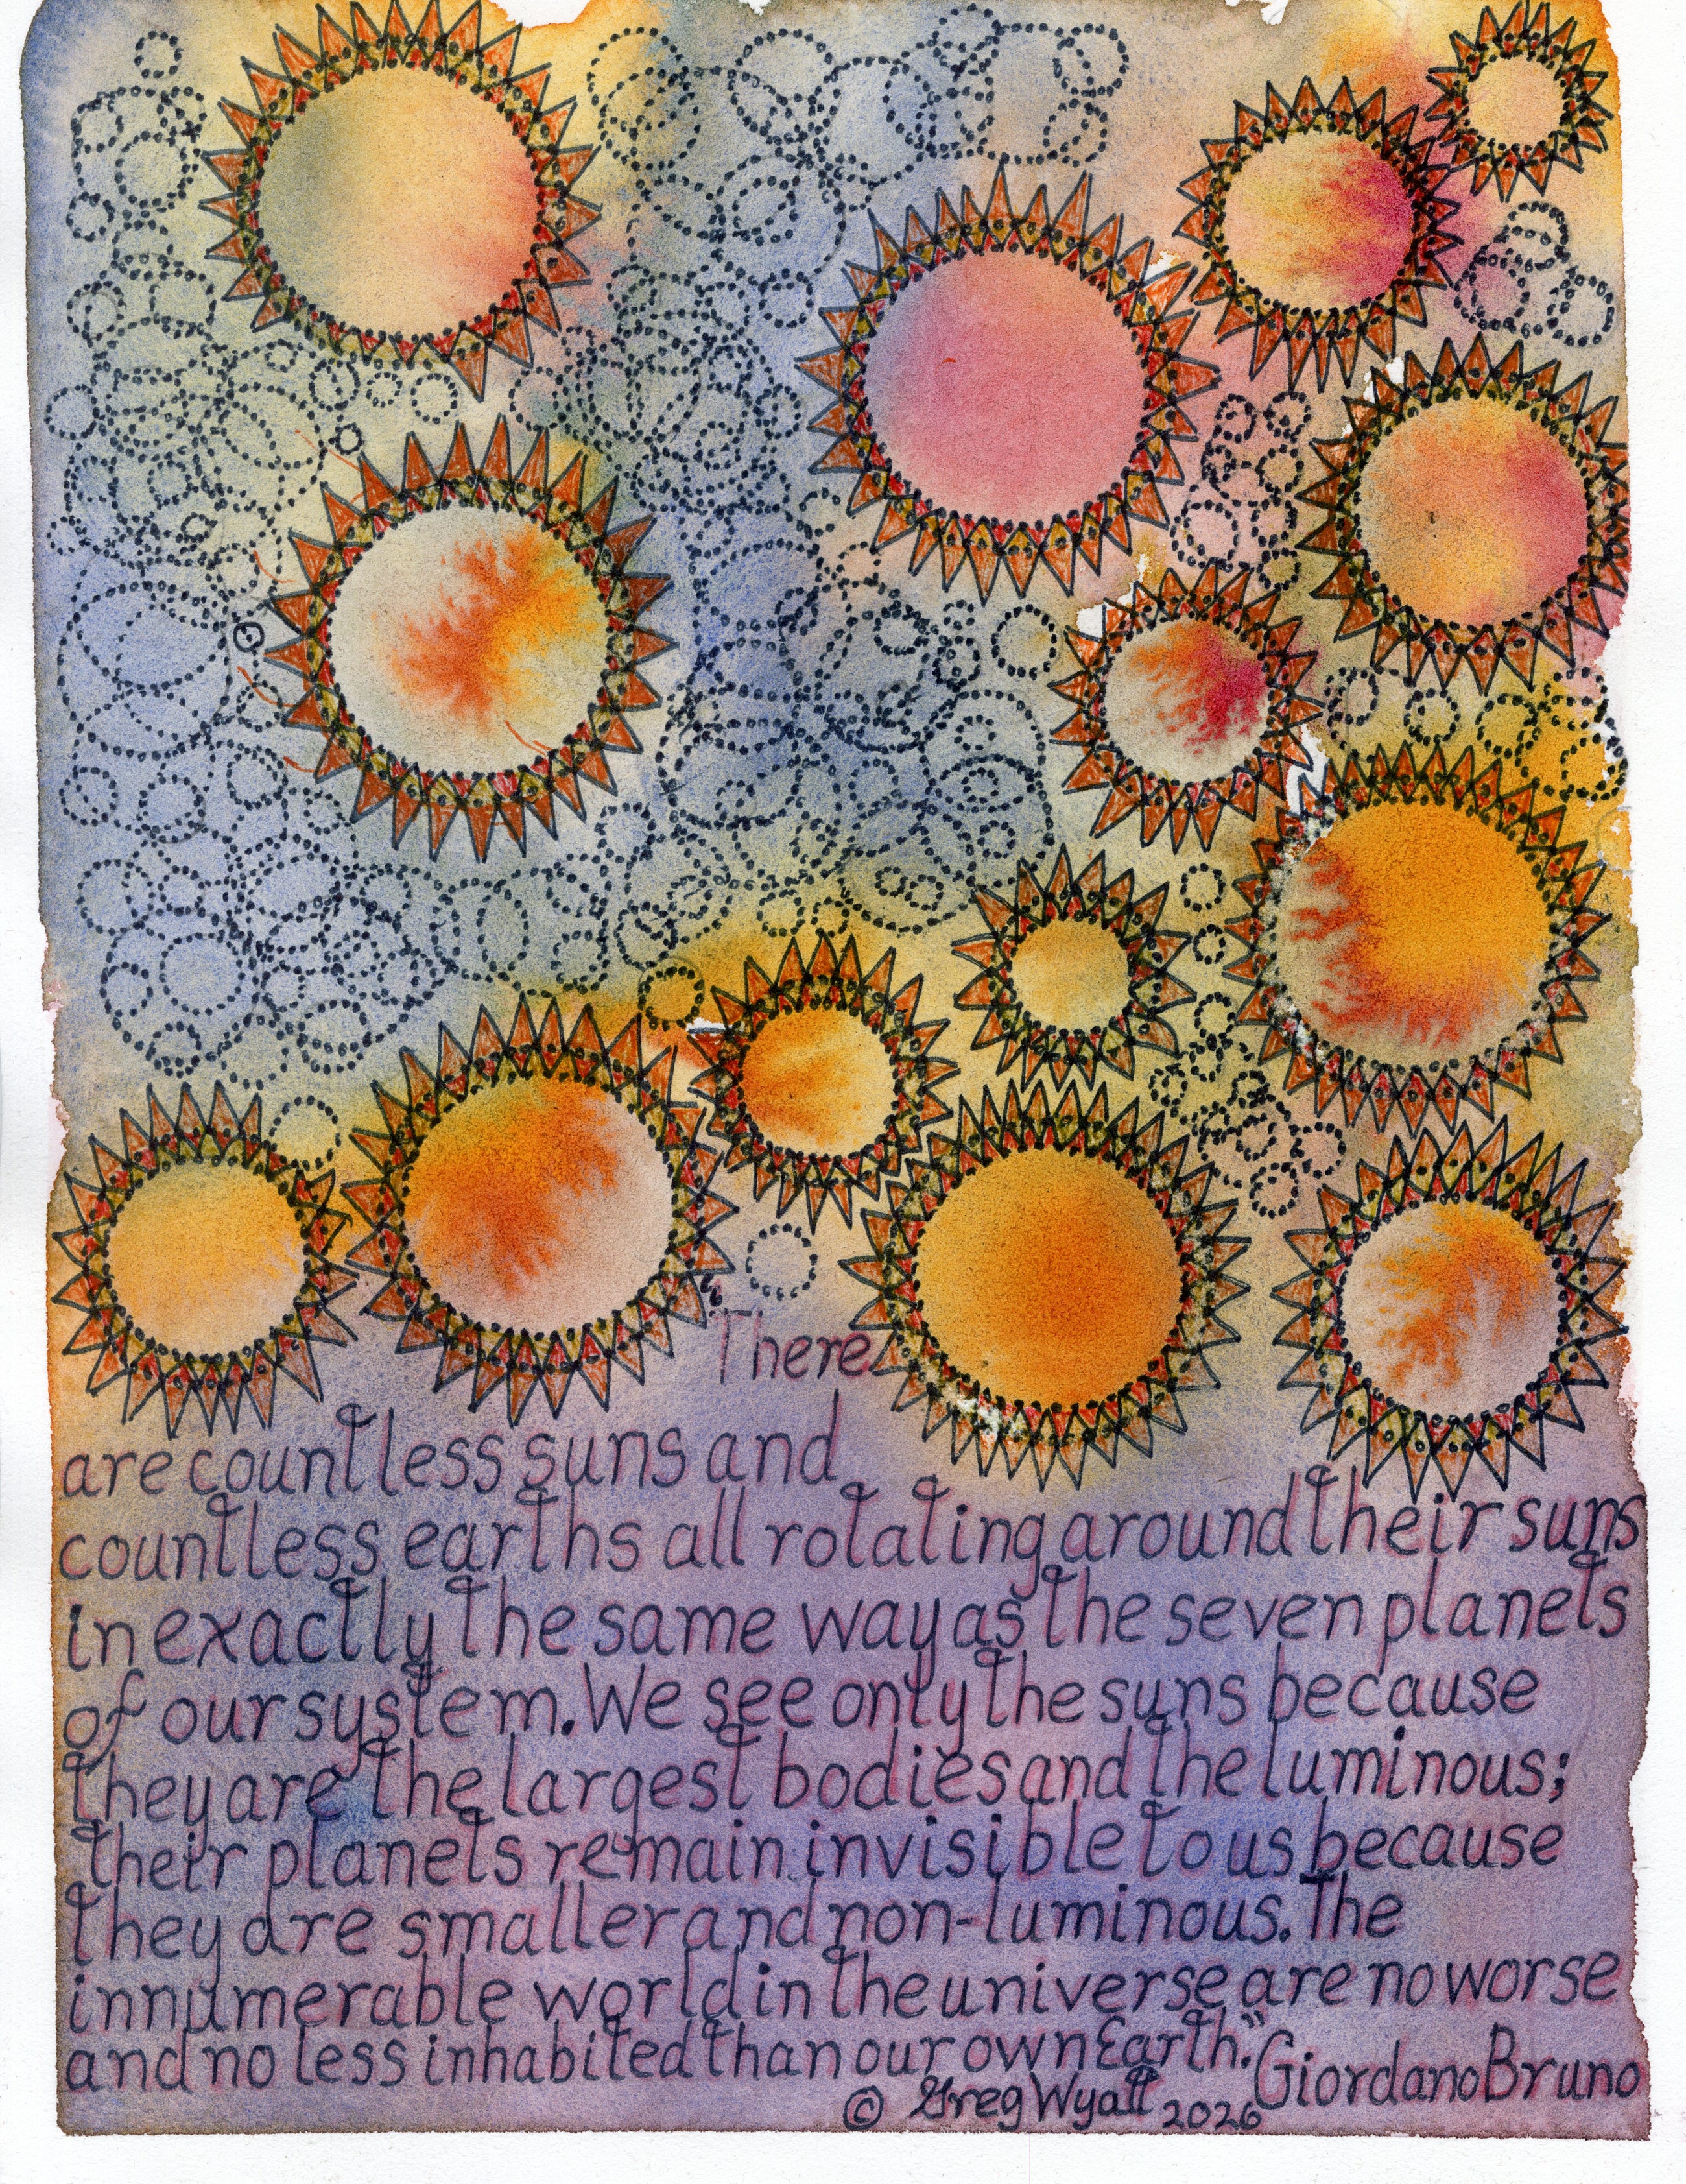 "There
are countless suns and
countless earths all rotating around their suns
in exactly the same way as the seven planets
of our system. We see only the suns because
they are the largest bodies and the luminous;
their planets remain invisible to us because
they are smaller and non-luminous. The
innumerable world in the universe are no worse
and no less inhabited than our own Earth." Giordano Bruno
© Greg Wyatt 2026